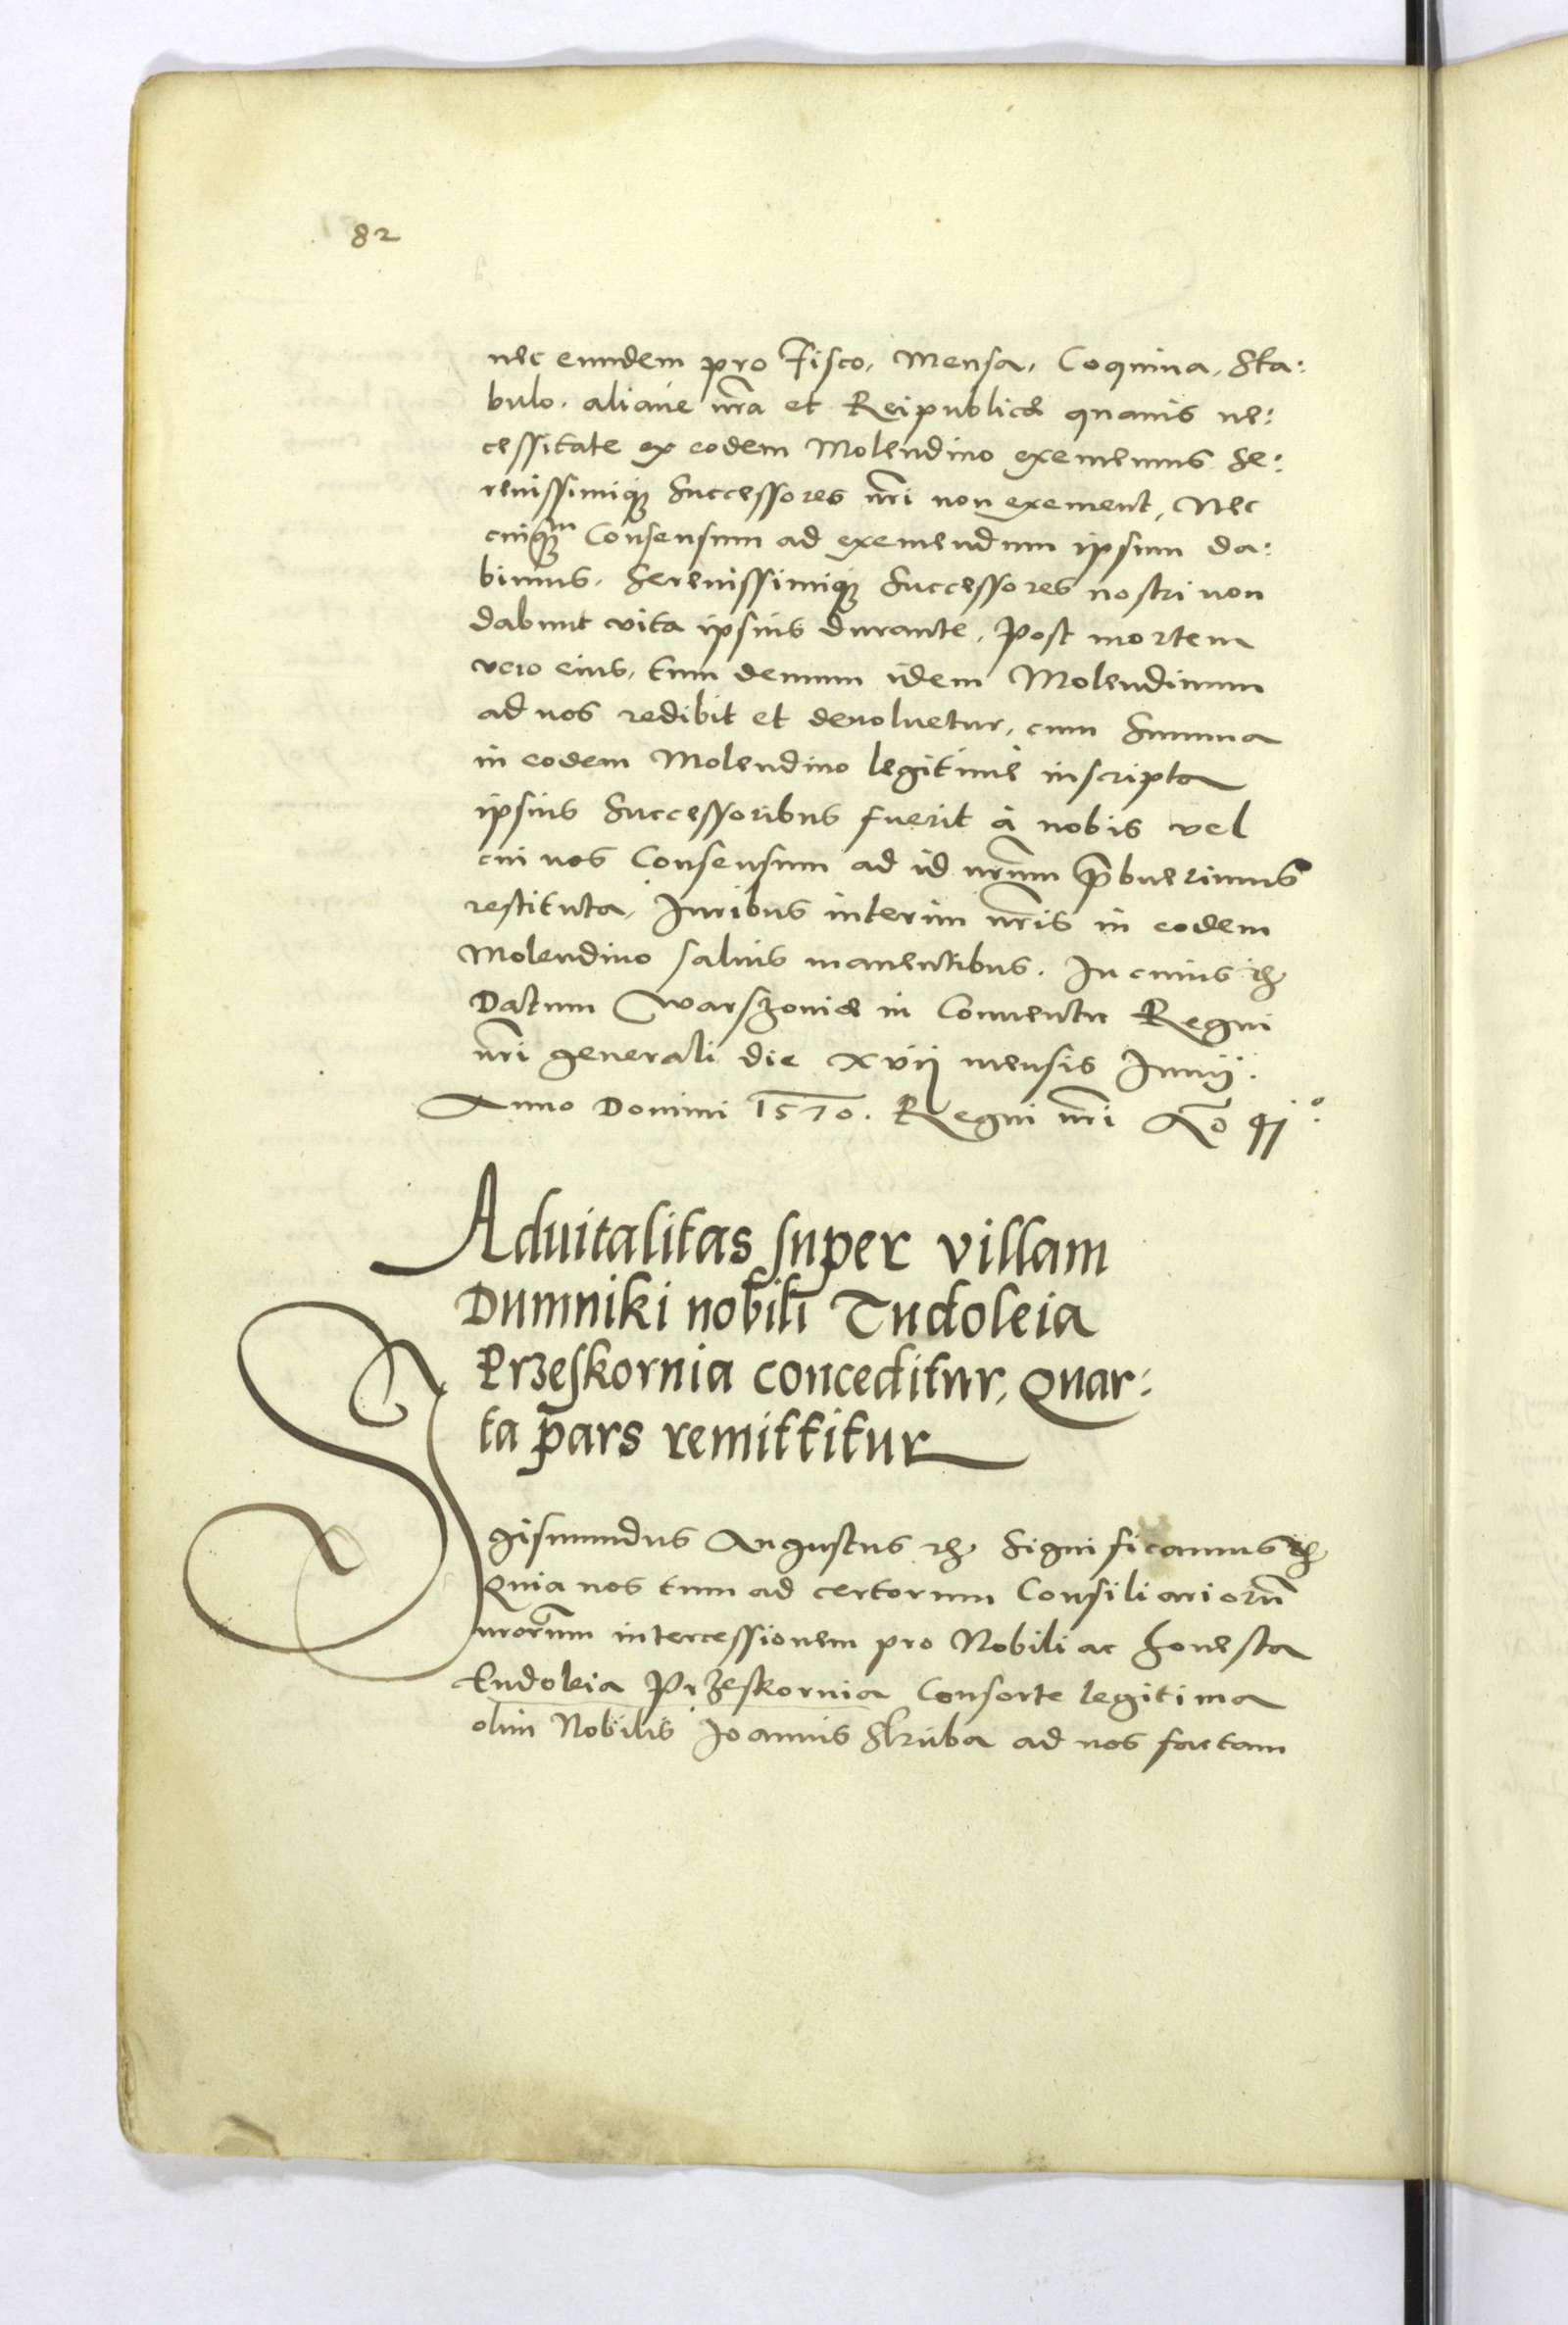 82
nec eundem pro Fisco, Mensa, Coquina, Sta:
bulo, aliaue nr̃a et Reipublicæ quauis ne:
cessitate ex eodem Molendino exememus Se:
renissimiq; Successores nr̃i non exement, Nec
cuiq;m Consensum ad exemendum ipsum da:
bimus, Serenissimiq; Successores nostri non
dabunt vita ipsius durante, Post mortem
vero eius, tum demum idem Molendinum
ad nos redibit et deuoluetur, cum Summa
in eodem Molendino legitimè inscripta
ipsius Successoribus fuerit à nobis vel
cui nos Consensum ad id nr̃um p̃buerimus
restituta, Juribus interim nr̃is in eodem
Molendino saluis manentibus. In cuius rei
Datum Warszouiæ in Conuentu Regni
nr̃i generali die xvij mensis Junij.
Anno Domini 1570. Regni nr̃i Ao 41°
Aduitalitas super villam
Dumniki nobili Tudoleia
Przeskornia conceditur, Quar:
ta pars remittitur
Sigismundus Augustus etc Significamus etc
Quia nos tum ad certorum Consiliariorũ
nrõrum intercessionem pro Nobili ac honesta
Eudokia Przeskornia Consorte legitima
olim Nobilis Joannis Skruba ad nos factam